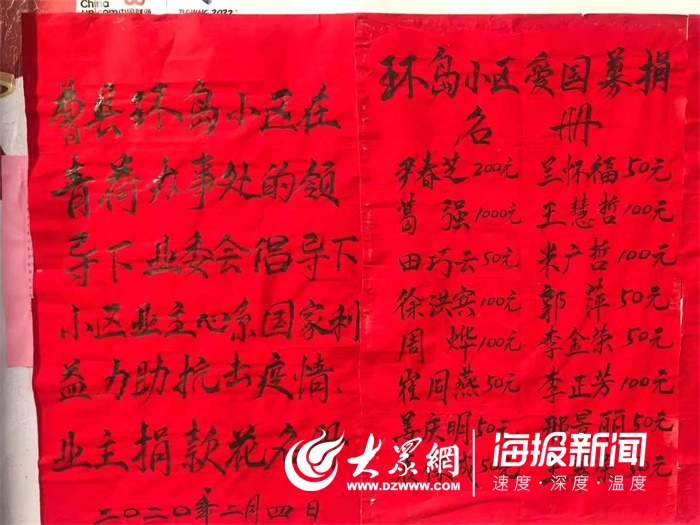 China
unicom中国联通
曹县环岛小区在
青荷办事处的领
导下业委会倡导下
小区业主心系国家利
益力助抗击疫情、
业主捐款花名
二〇二〇年二月四日
环岛小区爱国募捐
名册
尹春芝200元 兰怀福50元
葛强1000元 王慧哲100元
田巧云50元 米广哲100元
徐洪宾100元 郭萍50元
周烨100元 李金荣50元
崔同燕50元 李正芳100元
姜庆明50元 邢景丽50元
50元 50元
大众網
WWW.DZWWW.COM
海报新闻
速度·深度·温度